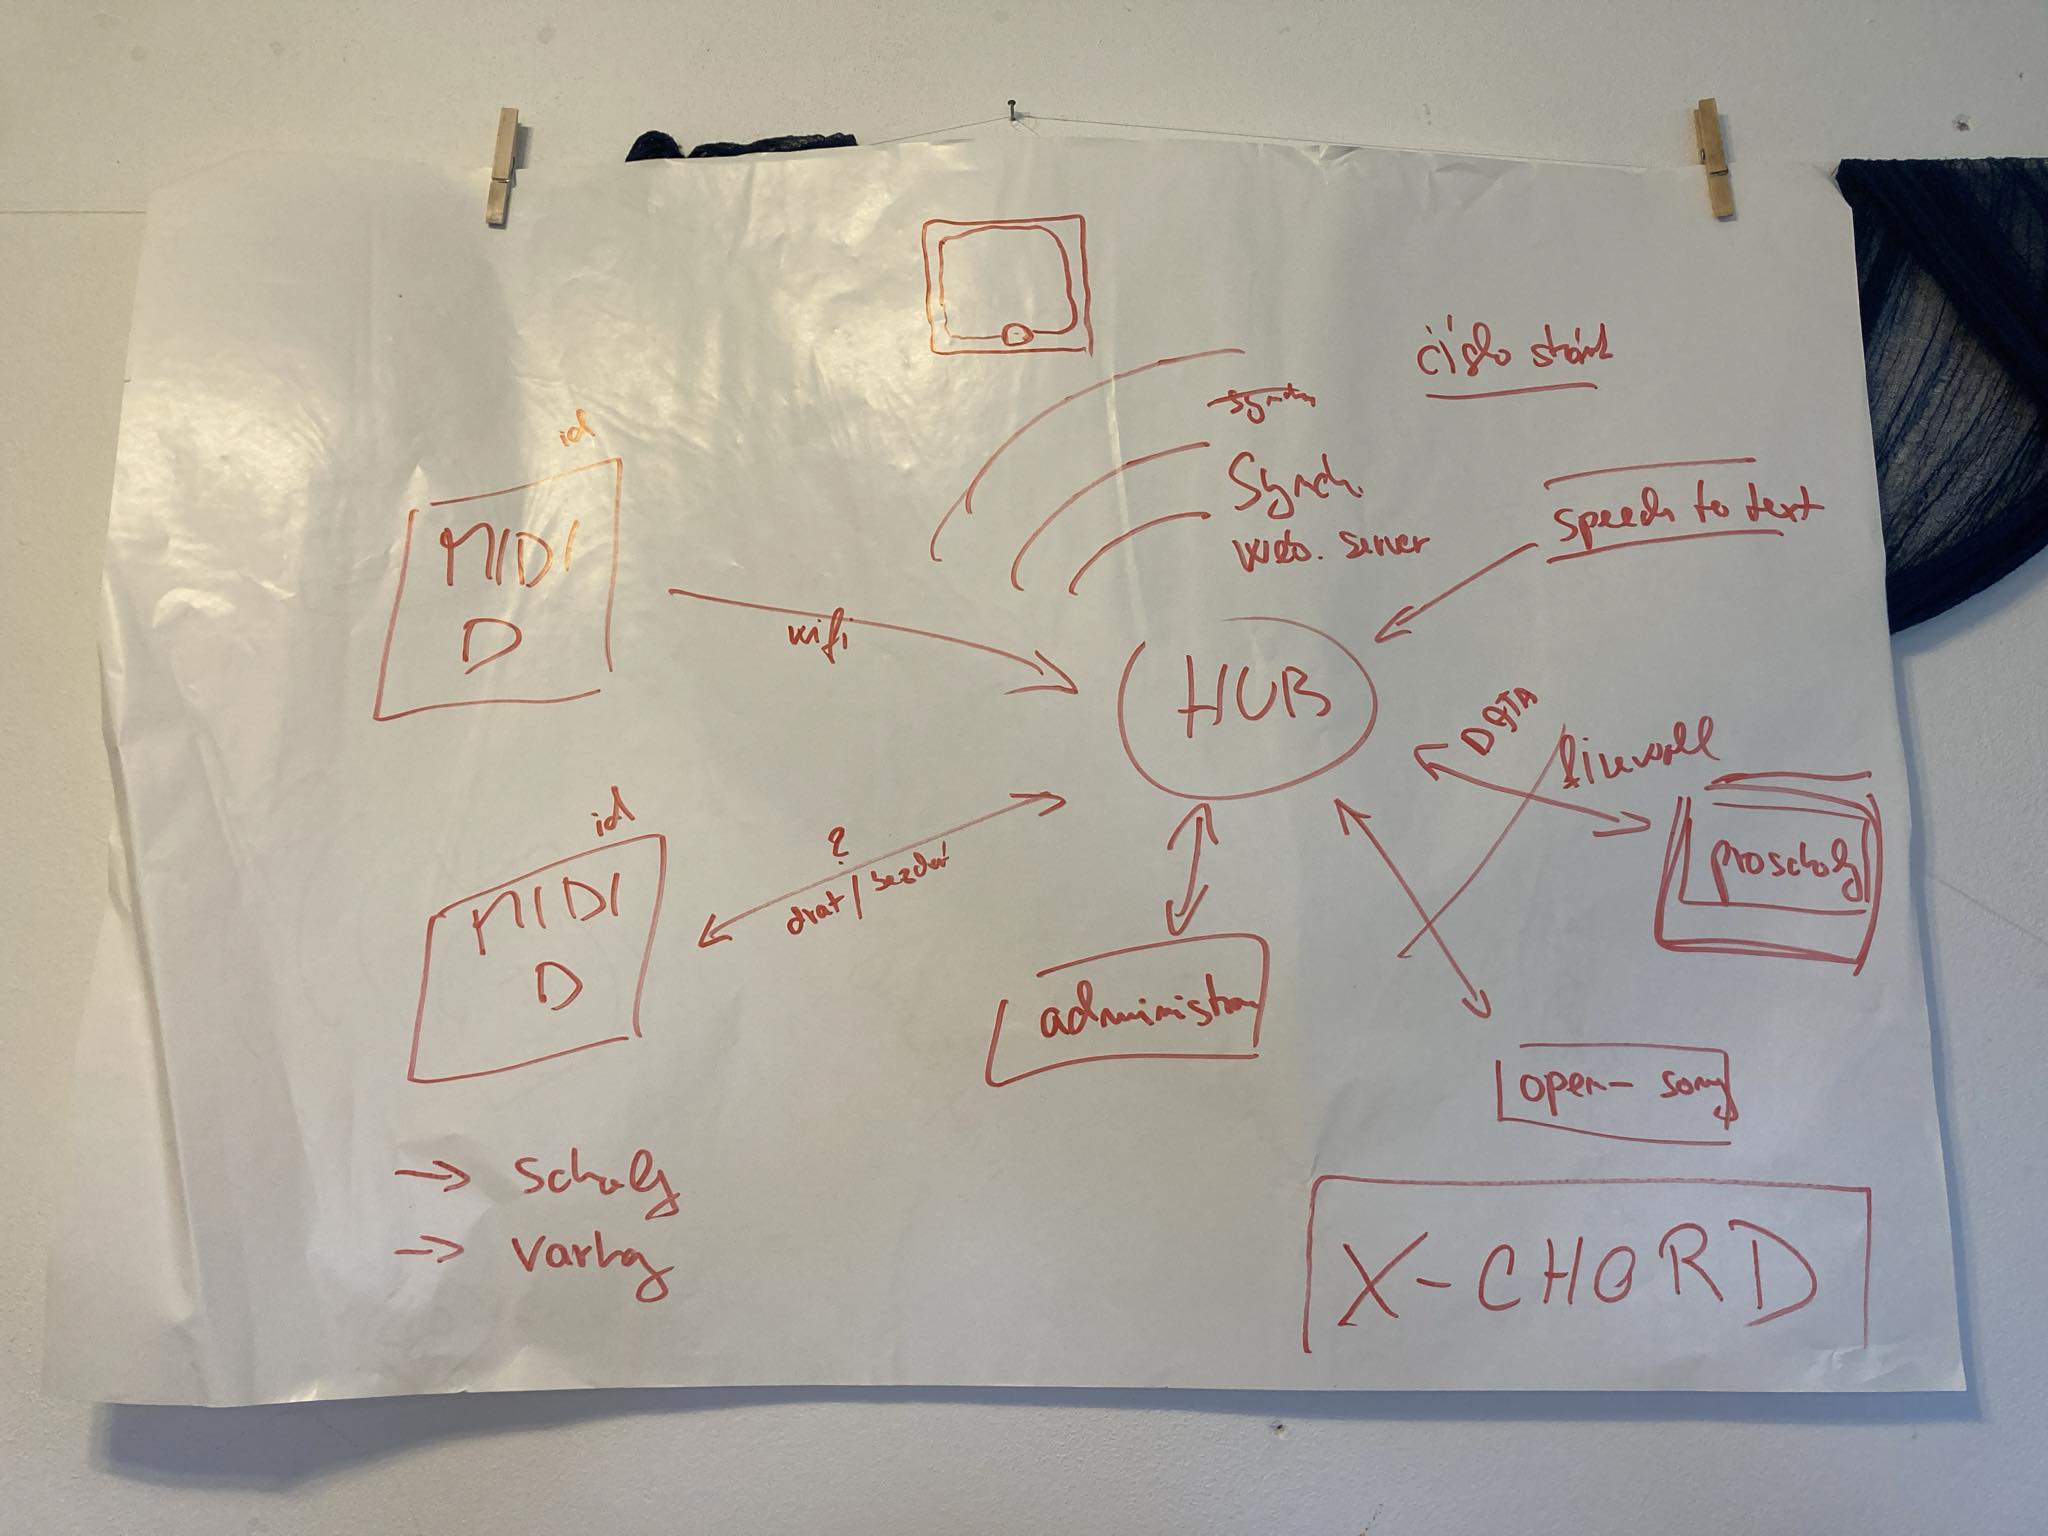 číslo stránk
Synch.
web. server
speech to text
id
MIDI
D
wifi
HUB
DATA
firewall
proscholy
id
MIDI
D
?
drat / bezdrát
administrac
open-song
→ scholy
→ varhany
X-CHORD